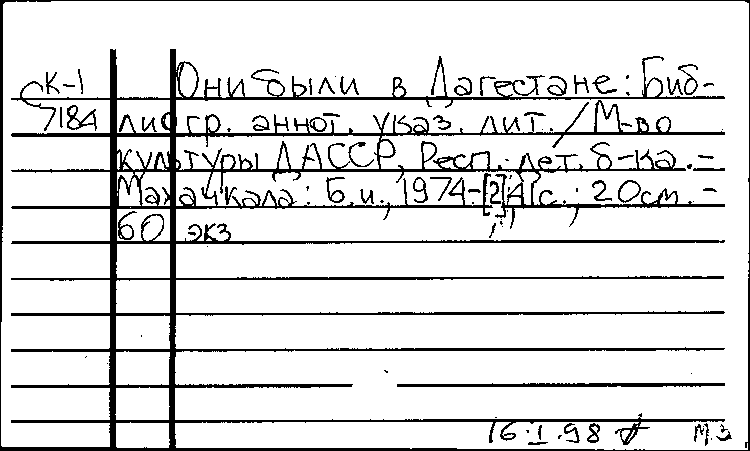 СК-1 Они были в Дагестане: Биб-
7184 лиогр. аннот. указ. лит. / М-во
культуры ДАССР, Респ. дет. б-ка. -
Махачкала: Б.и., 1974-[2], с.; 20см. -
60 экз
16.I.98 М.З